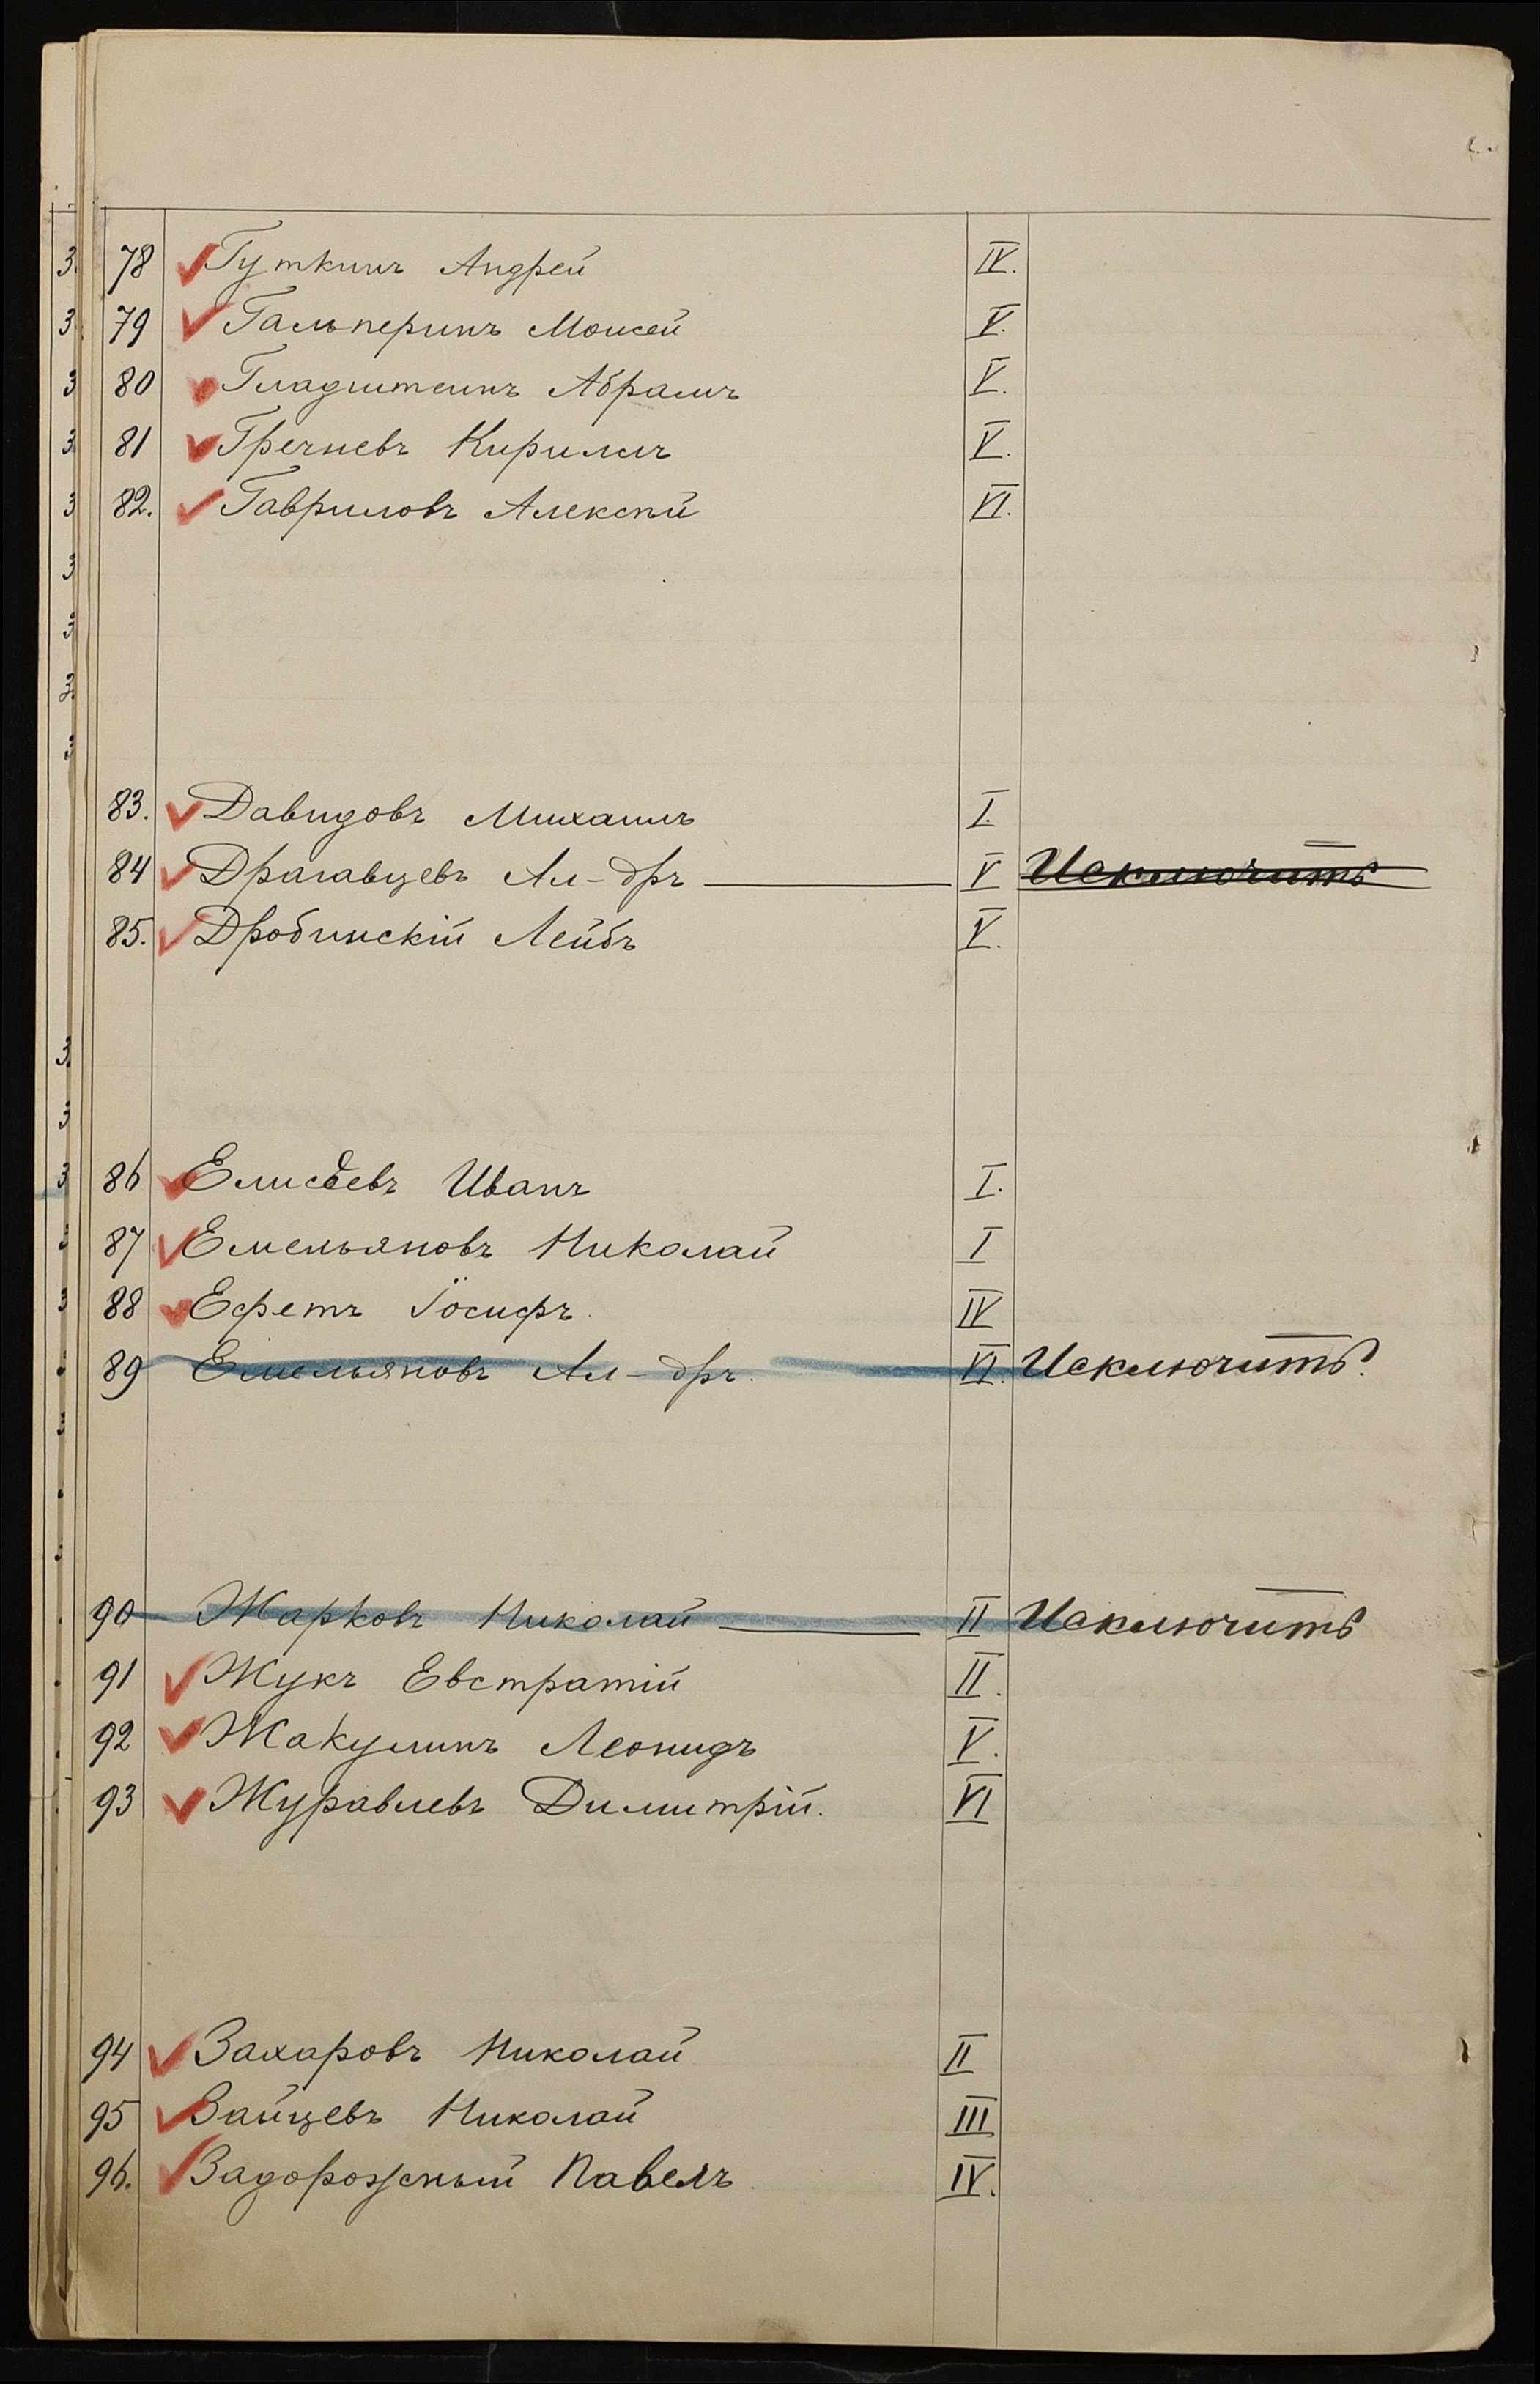 78 Гуткинъ Андрей IV.
79 Гальперинъ Моисей V.
80 Гладштейнъ Абрамъ V.
81 Гречневъ Кириллъ V.
82. Гавриловъ Алексѣй VI.
83. Давидовъ Михаилъ I.
84 Драгавцевъ Ал-дръ V Исключить
85. Дробинскій Лейбъ V.
86 Елисѣевъ Иванъ I.
87 Емельяновъ Николай I
88 Ефетъ Іосифъ IV
89 Емельяновъ Ал-дръ. VI. Исключить.
90 Жарковъ Николай II Исключить
91 Жукъ Евстратій II.
92 Жакулинъ Леонидъ V.
93 Журавлевъ Димитрій. VI
94 Захаровъ Николай II
95 Зайцевъ Николай III
96. Задорожный Павелъ IV.